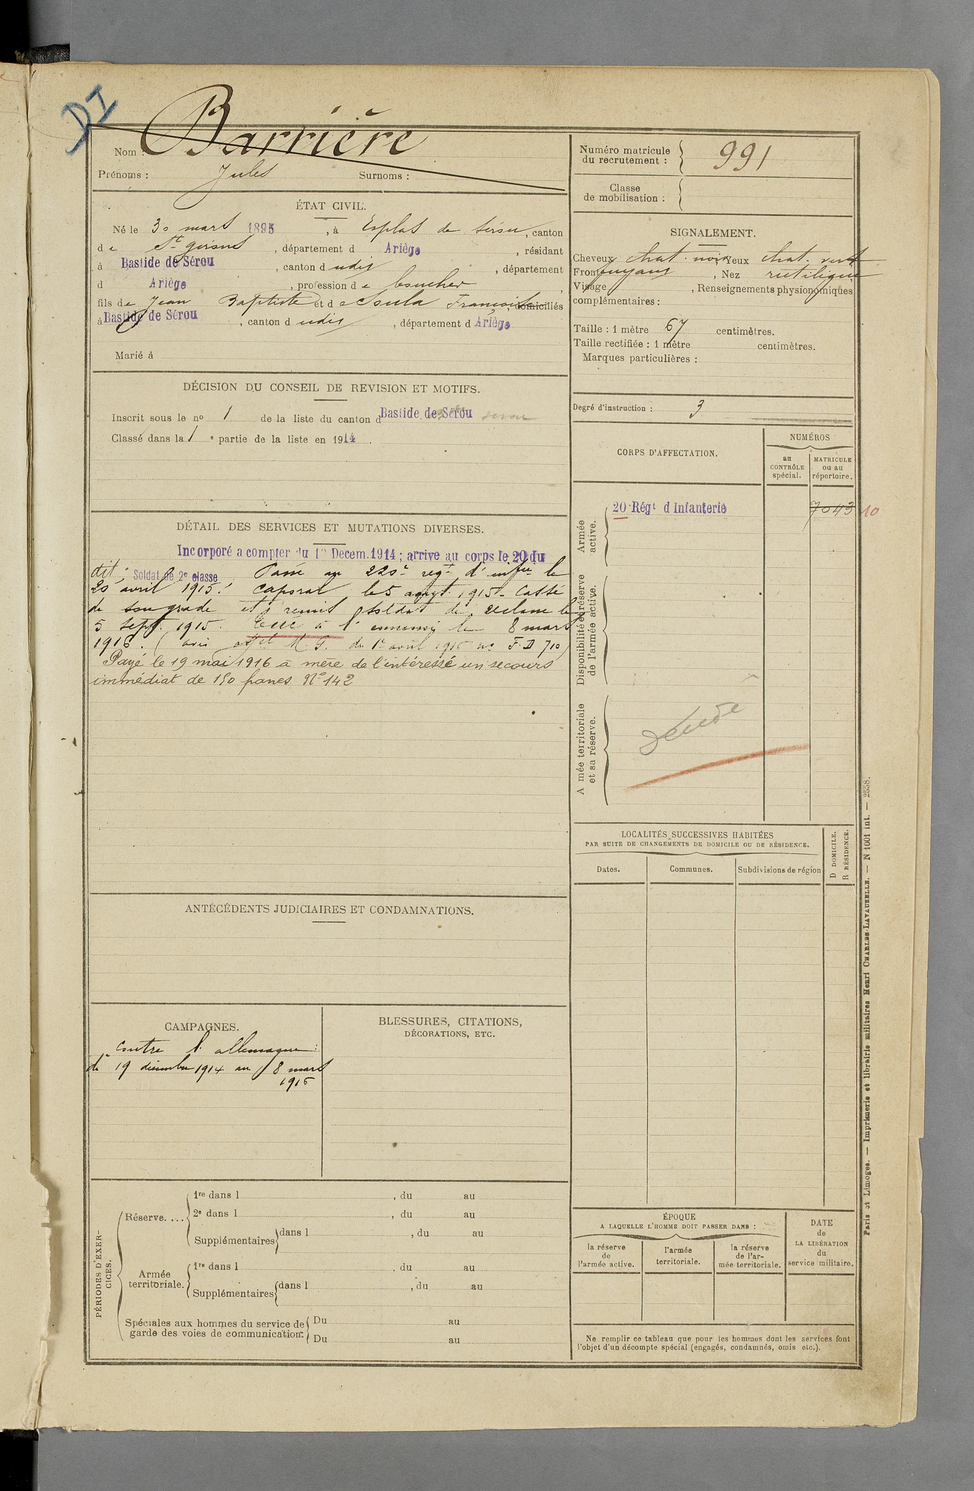 DI
Nom : Barrière
Prénoms : Jules Surnoms :
ÉTAT CIVIL.
Né le 30 mars 1895, à Esplas de Sérou, canton
de St Girons, département d Ariège, résidant
à Bastide de Sérou, canton d udit, département
d Ariège, profession de boucher,
fils de Jean Baptiste et de Soula Françoise, domiciliés
à Bastide de Sérou, canton d udit, département d Ariège
Marié à
DÉCISION DU CONSEIL DE REVISION ET MOTIFS.
Inscrit sous le no 1 de la liste du canton d Bastide de Sérou
Classé dans la 1e partie de la liste en 1914.
DÉTAIL DES SERVICES ET MUTATIONS DIVERSES.
Incorporé a compter du 1er Decem. 1914 ; arrive au corps le 20 du
dit ; Soldat de 2e classe Passé au 220e régt d'infrie le
20 avril 1915. Caporal le 5 août 1915. Cassé
de son grade et remis soldat de 2e classe le
5 Sept. 1915. Tué à l'ennemi le 8 mars
1916. (avis M. G. du 1er avril 1916 no F.D 710)
Payé le 19 mai 1916 a mère de l'intéressé un secours
immédiat de 150 francs. No 142
ANTÉCÉDENTS JUDICIAIRES ET CONDAMNATIONS.
CAMPAGNES.
contre l'allemagne :
du 19 décembre 1914 au 8 mars
1916
BLESSURES, CITATIONS,
DÉCORATIONS, ETC.
PÉRIODES D'EXERCICES.
Réserve....
1re dans l , du au
2e dans l , du au
Supplémentaires dans l , du au
Armée
territoriale.
1re dans l , du au
Supplémentaires dans l , du au
Spéciales aux hommes du service de
garde des voies de communication:
Du au
Du au
Numéro matricule
du recrutement : 991
Classe
de mobilisation :
SIGNALEMENT.
Cheveux chat. noir Yeux chat. vert
Front fuyant, Nez rectiligne
Visage , Renseignements physionomiques
complémentaires :
Taille : 1 mètre 67 centimètres.
Taille rectifiée : 1 mètre centimètres.
Marques particulières :
Degré d'instruction : 3
CORPS D'AFFECTATION.
NUMÉROS
au
CONTRÔLE
spécial.
MATRICULE
ou au
répertoire.
Armée
active.
20 Régt d Infanterie
7043 10
Disponibilité et réserve
de l'armée active.
Armée territoriale
et sa réserve.
Décédé
LOCALITÉS SUCCESSIVES HABITÉES
PAR SUITE DE CHANGEMENTS DE DOMICILE OU DE RÉSIDENCE.
Dates.
Communes.
Subdivisions de région
D DOMICILE.
R RÉSIDENCE.
ÉPOQUE
A LAQUELLE L'HOMME DOIT PASSER DANS :
la réserve
de
l'armée active.
l'armée
territoriale.
la réserve
de l'armée territoriale.
DATE
de
LA LIBÉRATION
du
service militaire.
Ne remplir ce tableau que pour les hommes dont les services font
l'objet d'un décompte spécial (engagés, condamnés, omis etc.).
Paris et Limoges. — Imprimerie et librairie militaires Henri CHARLES-LAVAUZELLE. — N 1001 int. — 2558.